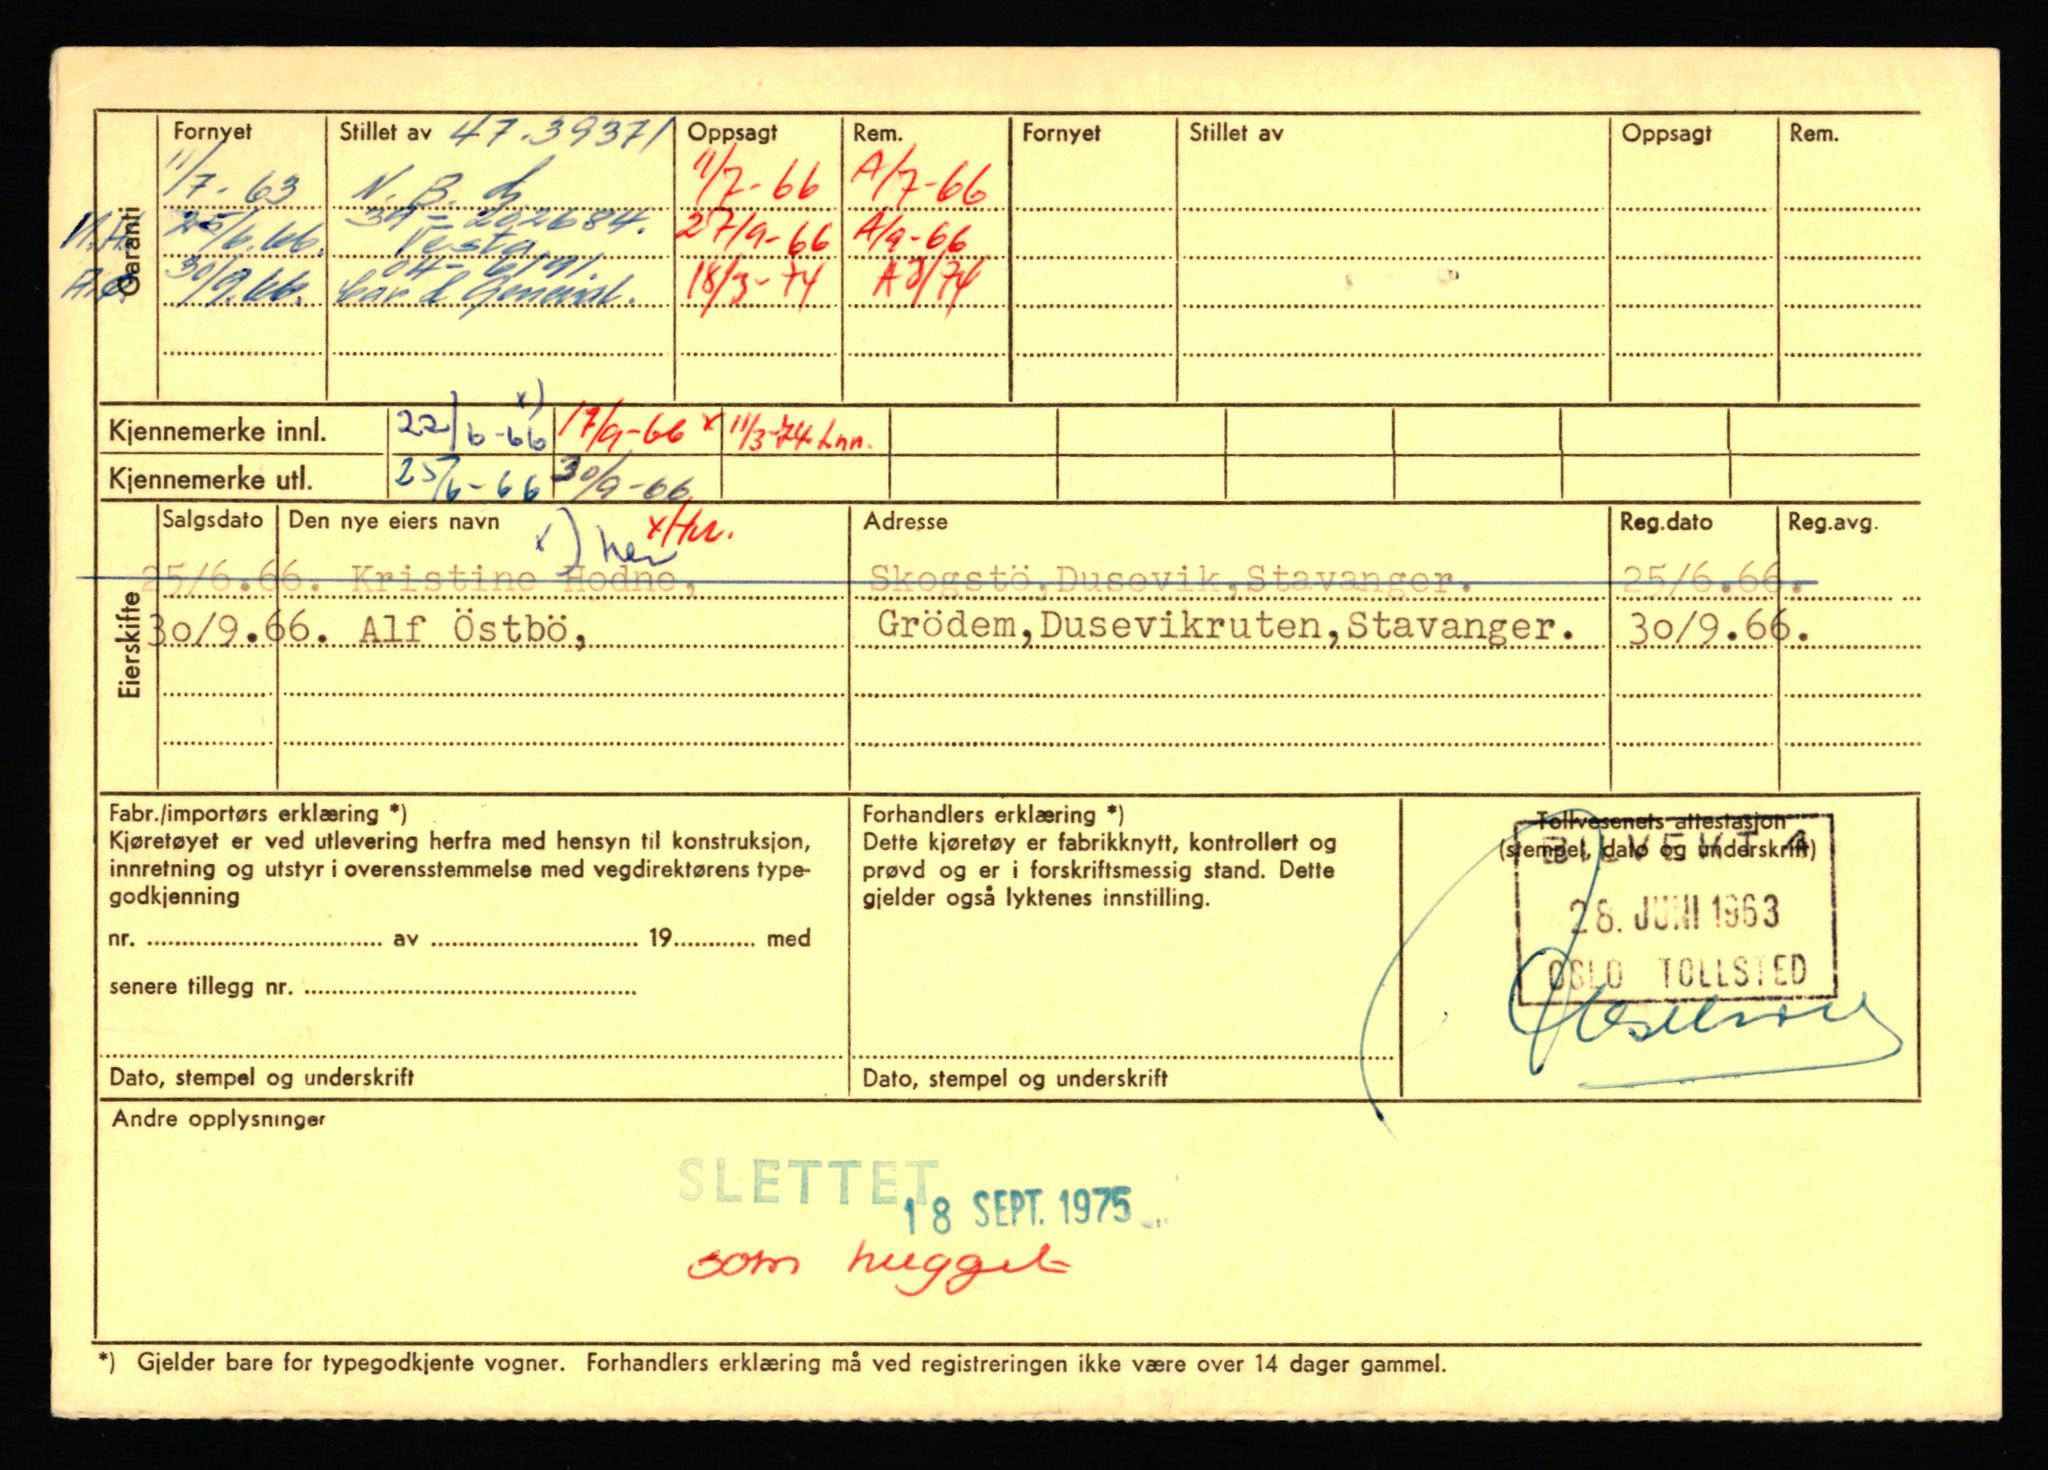 Garanti
Fornyet Stillet av 47.39371 Oppsagt Rem. Fornyet Stillet av Oppsagt Rem.
11/7-63 N.B. 11/7-66 A/7-66
25/6.66. 39-202684. Vesta 27/9-66 A/9-66
30/9.66. 04-6191. General. 18/3-74 A3/74
Kjennemerke innl. 22/6-66 x) 17/9-66 x 11/3-74
Kjennemerke utl. 25/6-66 30/9-66
Eierskifte
Salgsdato Den nye eiers navn Adresse Reg.dato Reg.avg.
x) her x/Hr.
25/6.66. Kristine Hodne, Skogstö,Dusevik,Stavanger. 25/6.66.
30/9.66. Alf Östbö, Grödem,Dusevikruten,Stavanger. 30/9.66.
Fabr./importørs erklæring *)
Kjøretøyet er ved utlevering herfra med hensyn til konstruksjon,
innretning og utstyr i overensstemmelse med vegdirektørens type-
godkjenning
nr. .......... av .......... 19.......... med
senere tillegg nr. ..........
Dato, stempel og underskrift
Forhandlers erklæring *)
Dette kjøretøy er fabrikknytt, kontrollert og
prøvd og er i forskriftsmessig stand. Dette
gjelder også lyktenes innstilling.
Dato, stempel og underskrift
Tollvesenets attestasjon
(stempel, dato og underskrift)
BILVEKT 4
28. JUNI 1963
OSLO TOLLSTED
Andre opplysninger
SLETTET
18 SEPT. 1975
som hugget
*) Gjelder bare for typegodkjente vogner. Forhandlers erklæring må ved registreringen ikke være over 14 dager gammel.